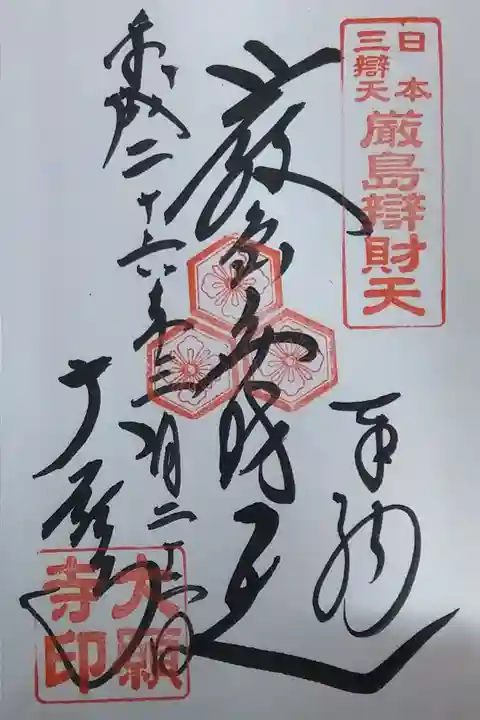 日本
三辯天
厳島辯財天
奉納
厳島弁財天
平成二十六年三月二十六日
大願寺
大願
寺印